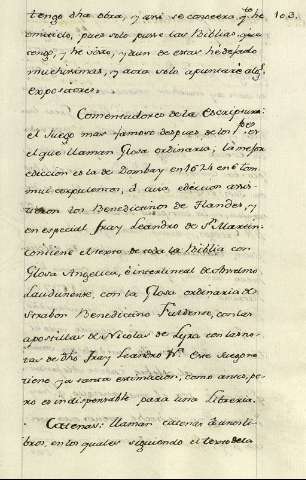 tengo dha obra, y assi se conocera, q.to he 103.
omitido, pues solo puse las Biblias, que
tengo, y he visto, y aun de estas he dejado
muchissimas, y aora solo apuntaré alg.s
Expositores.
Comentadores de la Escriptura:
el Juego mas famoso despues de los P.P. es
el que llaman Glosa ordinaria, la mejor
edicion es la de Dombay en 1624 en 6 tom.
mui corpulentos, á cuia edicion assis-
tieron los Benedictinos de Flandes, y
en especial Fray Leandro de S.n Martin:
contiene el texto de toda la Biblia con
Glosa Angelica, ó interlineal de Anselmo
Laudunense, con la Glosa ordinaria de
Strabon Benedictino Fuldense, con las
apostillas de Nicolas de Lyra con las no-
tas de dho Fray Leandro &.a Este Juego no
tiene ya tanta estimacion, como antes, pe-
ro es indispensable para una Libreria.
Catenas: llaman catenas á unos li-
bros, en los quales siguiendo el texto de la